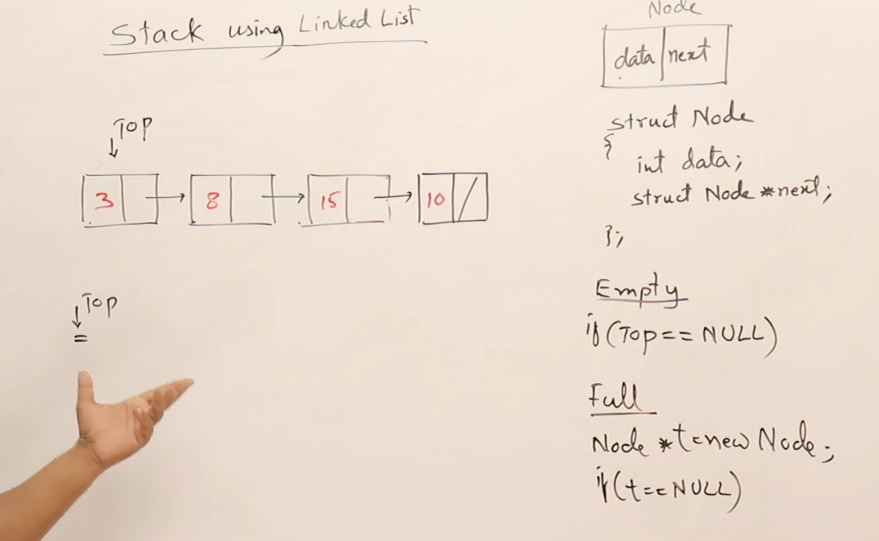 Stack using Linked List
Top
3
8
15
10
Top
Node
data next
struct Node
{
int data;
struct Node *next;
};
Empty
if(Top==NULL)
Full
Node *t=new Node;
if(t==NULL)